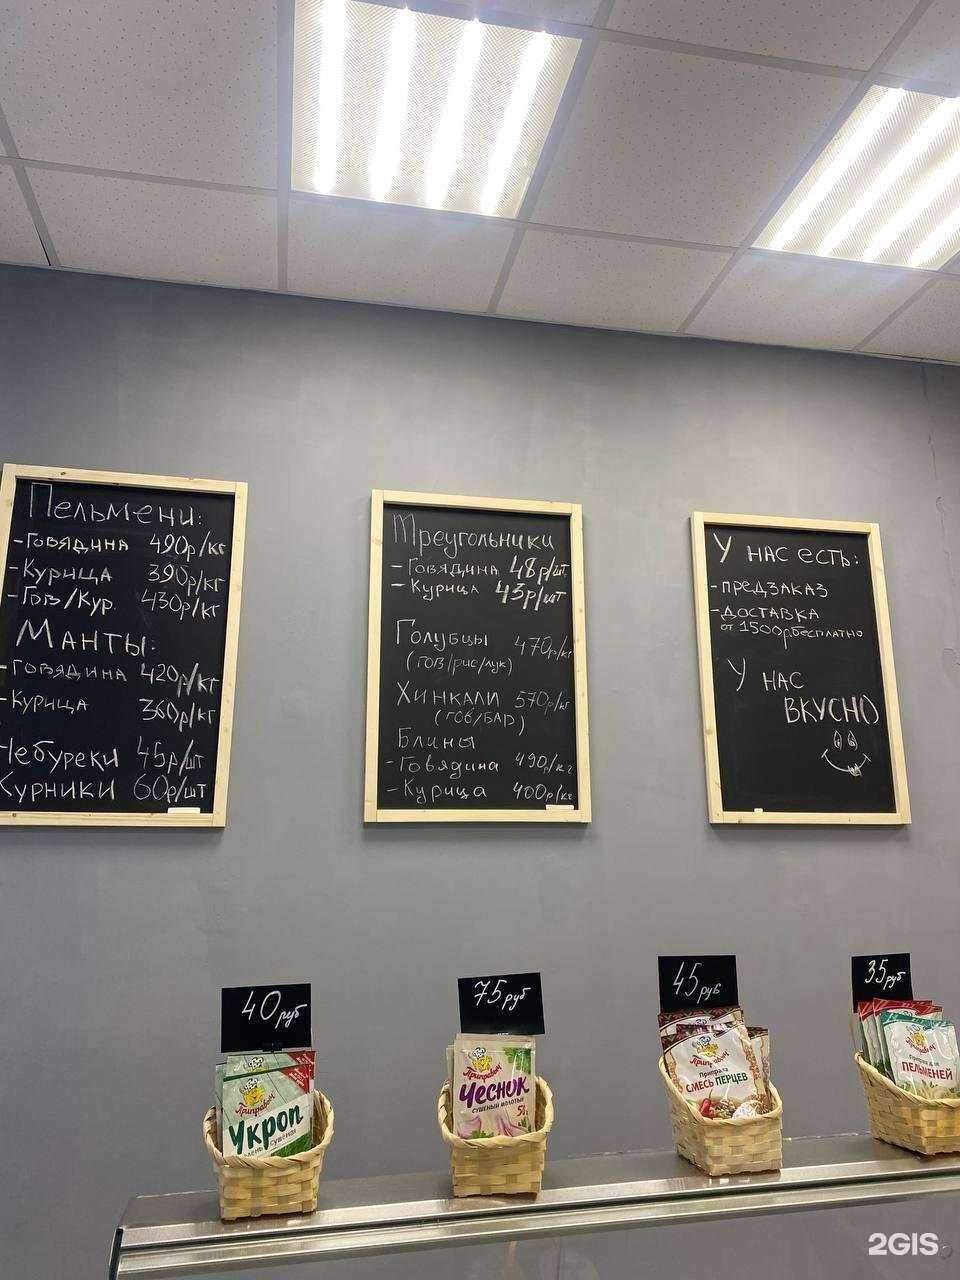 Пельмени:
-Говядина 490р/кг
-Курица 390р/кг
-Гов/Кур. 430р/кг
Манты:
-Говядина 420р/кг
-Курица 360р/кг
Чебуреки 45р/шт
Курники 60р/шт
Треугольники
-Говядина 48р/шт
-Курица 43р/шт
Голубцы 470р/кг
(гов/рис/лук)
Хинкали 570р/кг
(гов/бар)
Блины
-Говядина 490р/кг
-Курица 400р/кг
У нас есть:
-предзаказ
-доставка
от 1500р.бесплатно
У нас
вкусно
40 руб
Приправыч
Укроп
75 руб
Приправыч
Чеснок
сушеный молотый
45 руб
Приправыч
Приправа
СМЕСЬ ПЕРЦЕВ
35 руб
Приправыч
ПЕЛЬМЕНЕЙ
2GIS